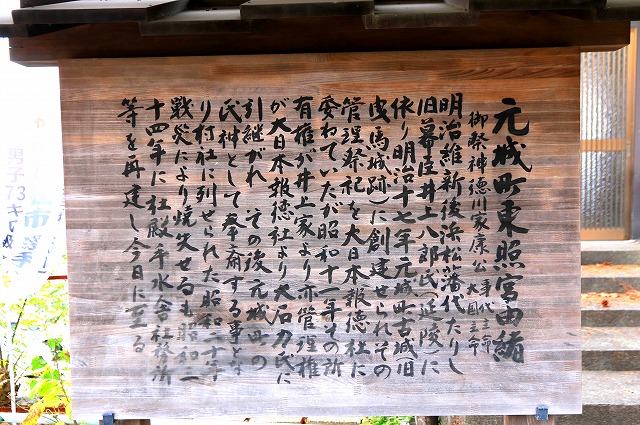 元城町東照宮由緒
御祭神徳川家康公
事代主命
大国主命
明治維新後浜松藩代たりし
旧幕臣井上八郎氏(延陵)に
依り明治十七年元城町古城(旧
曳馬城跡)に創建せられその
管理祭祀を大日本報徳社に
委ねていたが昭和十一年その所
有権が井上家より亦管理権
が大日本報徳社より大石力氏に
引継がれ その後元城町の
氏神として奉斎する事とな
り村社に列せられた昭和二十年
戦災により焼失せるも昭和三
十四年に社殿手水舎社務所
等を再建し今日に至る
男子73キロ級